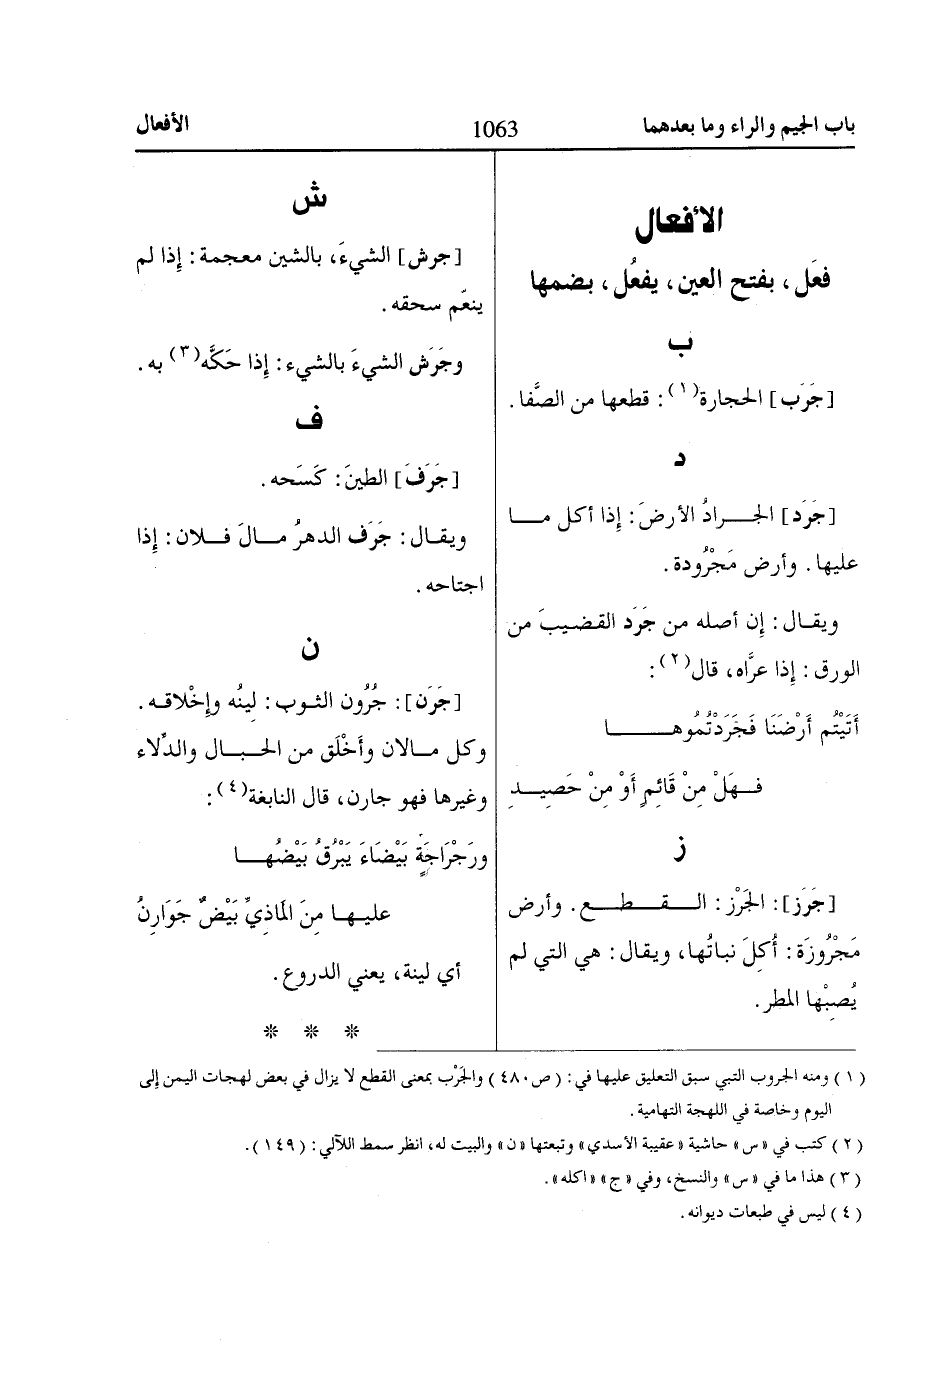 باب الجيم والراء وما بعدهما
1063
الأفعال
الأفعال
فعَل، بفتح العين، يفعُل، بضمها
ب
[جَرَب] الحجارة(١): قطعها من الصَّفا.
د
[جَرَد] الجرادُ الأرضَ: إذا أكل ما
عليها. وأرض مَجْرُودة.
ويقال: إن أصله من جَرَد القضيبَ من
الورق: إذا عرَّاه، قال(٢):
أَتَيْتُم أَرْضَنَا فَجَرَدْتُمُوها
فهَلْ مِنْ قَائِمٍ أَوْ مِنْ حَصِيدِ
ز
[جَرَز]: الجَرْز: القطع. وأرض
مَجْرُوزَة: أُكِلَ نباتُها، ويقال: هي التي لم
يُصِبْها المطر.
ش
[جرش] الشيءَ، بالشين معجمة: إذا لم
ينعّم سحقه.
وجَرَش الشيءَ بالشيء: إذا حَكَّه(٣) به.
ف
[جَرَفَ] الطينَ: كَسَحه.
ويقال: جَرَف الدهرُ مالَ فلان: إذا
اجتاحه.
ن
[جَرَن]: جُرُون الثوب: لِينُه وإِخْلاقه.
وكل مالان وأَخْلَق من الحبال والدِّلاء
وغيرها فهو جارن، قال النابغة(٤):
ورَجْرَاجَةٍ بَيْضَاءَ يَبْرُقُ بَيْضُها
عليها مِنَ الماذِيِّ بَيْضٌ جَوَارِنُ
أي لينة، يعني الدروع.
* * *
(١) ومنه الجروب التبي سبق التعليق عليها في: (ص٤٨٠) والجَرْب بمعنى القطع لا يزال في بعض لهجات اليمن إلى
اليوم وخاصة في اللهجة التهامية.
(٢) كتب في «س» حاشية «عقيبة الأسدي» وتبعتها «ن» والبيت له، انظر سمط اللآلي: (١٤٩).
(٣) هذا ما في «س» والنسخ، وفي «ج» «اكله».
(٤) ليس في طبعات ديوانه.